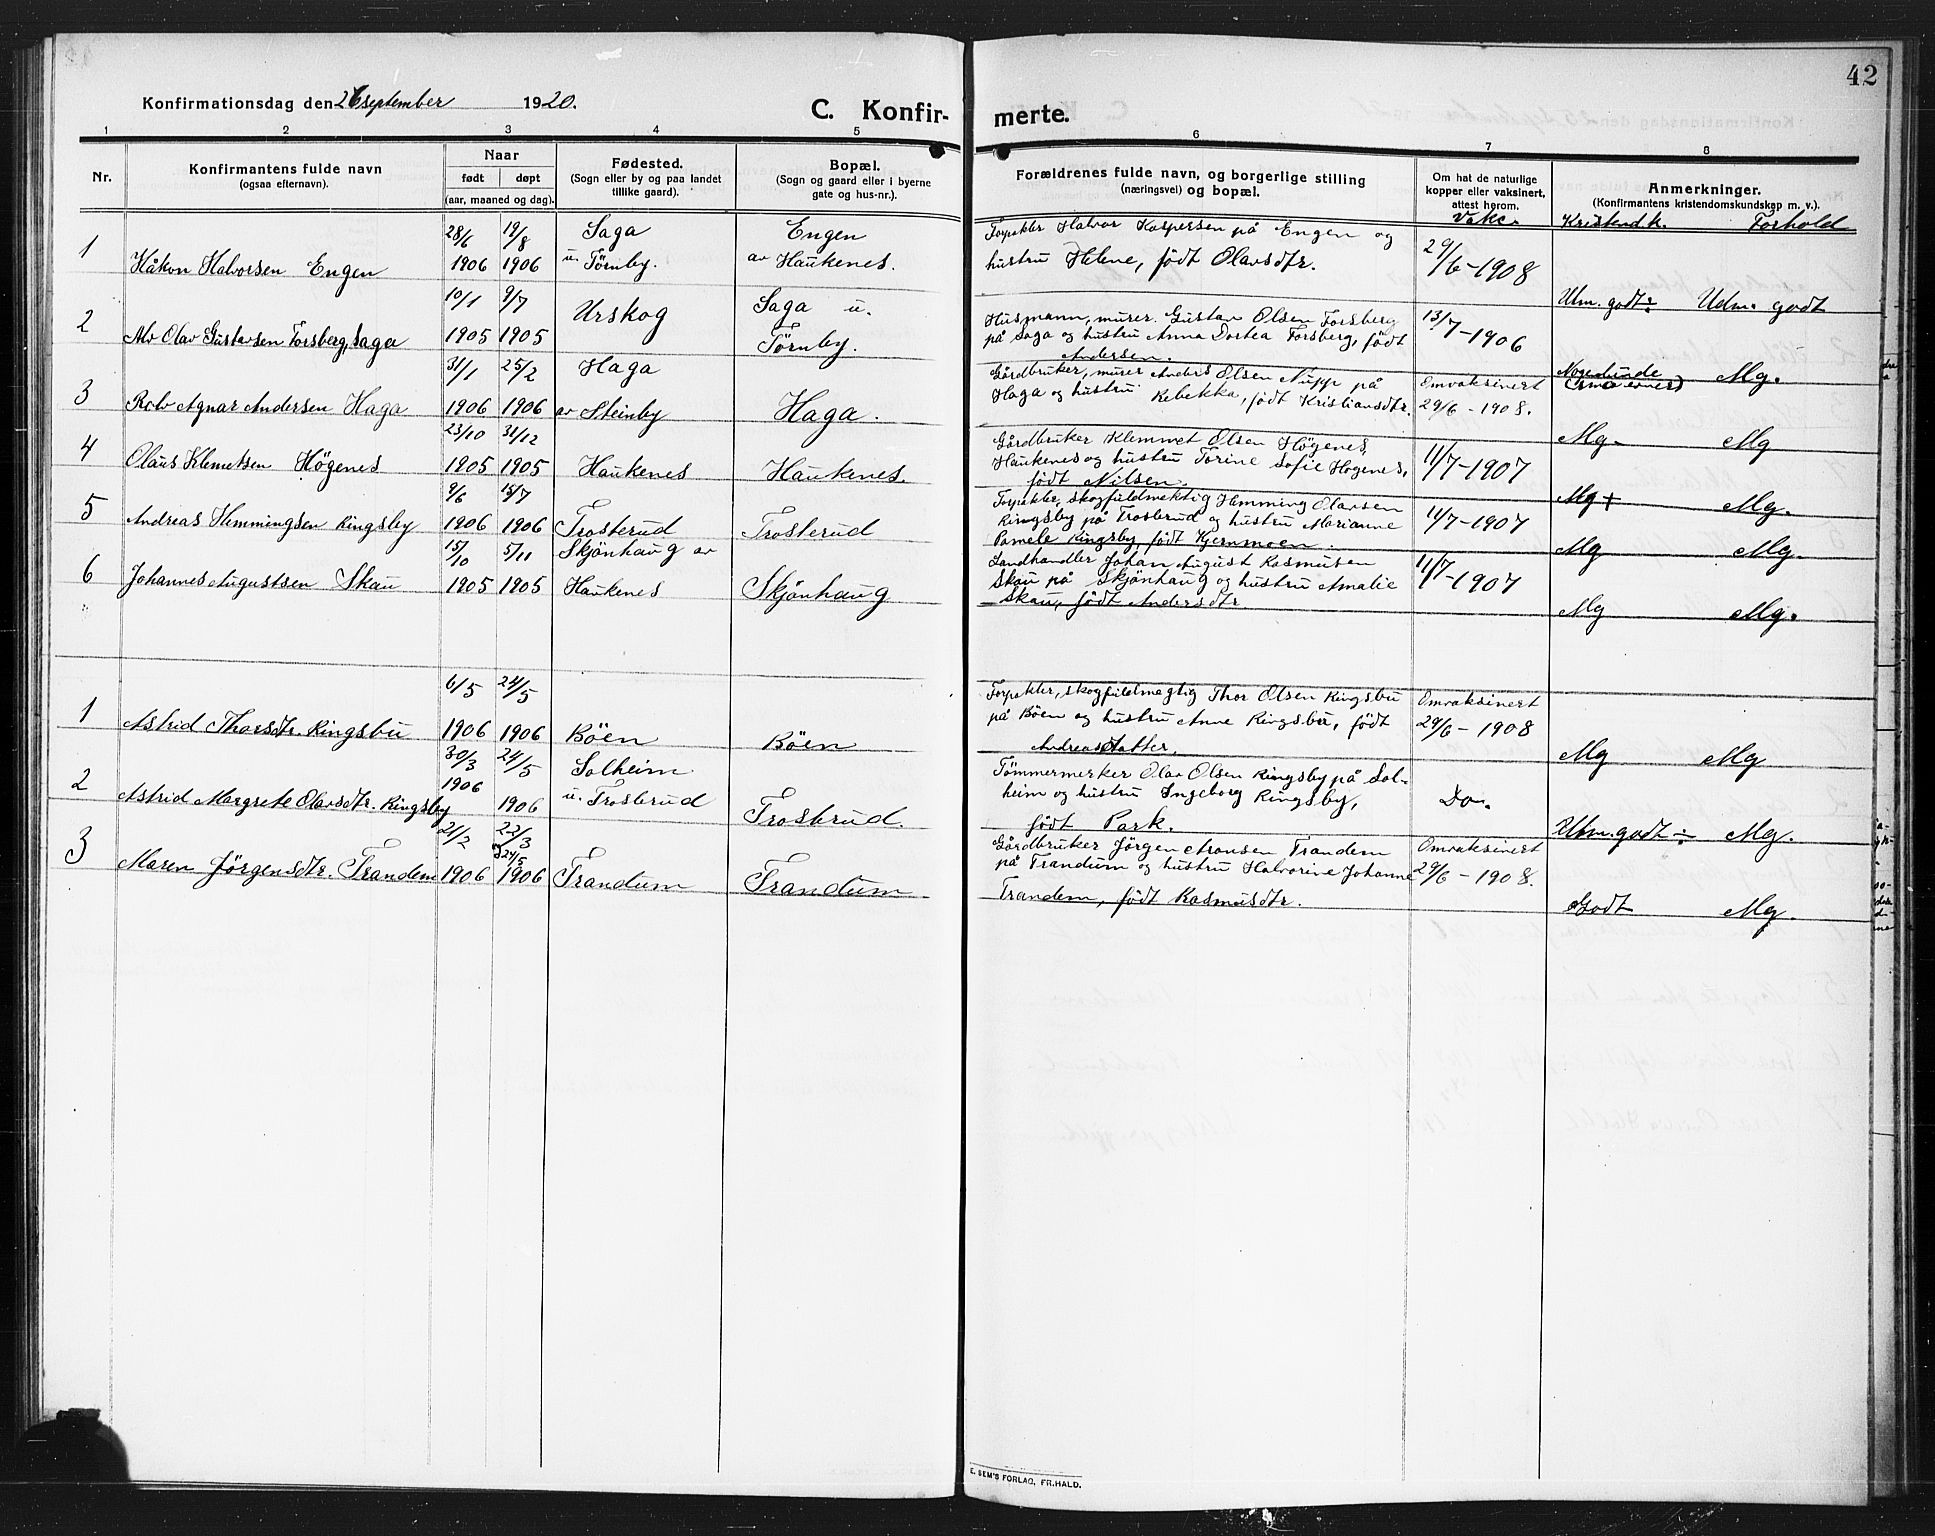 42
Konfirmationsdag den 26 september 1920.
C. Konfir- merte.
1 2 3 4 5 6 7 8
Nr.
Konfirmantens fulde navn
(ogsaa efternavn).
Naar
født døpt
(aar, maaned og dag).
Fødested.
(Sogn eller by og paa landet
tillike gaard).
Bopæl.
(Sogn og gaard eller i byerne
gate og hus-nr.).
Forældrenes fulde navn, og borgerlige stilling
(næringsvei) og bopæl.
Om hat de naturlige
kopper eller vaksinert,
attest herom.
Vakc.
Anmerkninger.
(Konfirmantens kristendomskundskap m. v.).
Kristend.k. Forhold
28/6 19/8 Saga Engen Forpakter Halvor Kaspersen på Engen og
1 Håkon Halvorsen Engen 1906 1906 u. Törnby. av Haukenes. hustru Helene, født Olavsdtr. 29/6-1908
Utm. godt÷ Udm. godt
10/1 9/7 Urskog Saga u. Husmann, murer. Gustav Olsen Forsberg 13/7-1906
2 Alv Olav Gustavsen Forsberg, Saga 1905 1905 Törnby. på Saga og hustru Anna Dortea Forsberg, født
Andersen. Nosenlunde
(små evner) Mg.
31/1 25/2 Haga Gårdbruker, murer Anders Olsen Nupp på Omvaksinert
3 Rolv Agnar Andersen Haga 1906 1906 av Steinby Haga. Haga og hustru Rebekka, født Kristiansdtr. 29/6-1908.
Mg. Mg
23/10 31/12 Gårdbruker Klemmet Olsen Högenes,
4 Olaus Klemetsen Högenes 1905 1905 Haukenes Haukenes. Haukenes og hustru Torine Sofie Högenes, 11/7-1907
født Nilsen. Mg+ Mg.
9/6 15/7 Forpakter, skogfuldmektig Hemming Olavsen
5 Andreas Hemmingsen Ringsby 1906 1906 Trosterud Trosterud Ringsby på Trosterud og hustru Marianne 11/7-1907
Pamele Ringsby, født Kjernmoen. Mg Mg.
15/10 5/11 Skjönhaug av Landhandler Johan August Rasmusen 11/7-1907
6 Johannes Augustsen Skau 1905 1905 Haukenes Skjönhaug Skau på Skjönhaug og hustru Amalie
Skau, født Andersdtr. Mg Mg.
6/5 24/5 Forpakter, skogfuldmegtig Thor Olsen Ringsbu Omvaksinert
1 Astrid Thorsdtr. Ringsbu 1906 1906 Böen Böen på Böen og hustru Anne Ringsbu, født 29/6-1908
Andreasdatter. Mg Mg
30/3 24/5 Solheim Tömmermerker Olav Olsen Ringsby på Sol-
2 Astrid Margrete Olavsdtr. Ringsby 1906 1906 u. Trosterud Trosterud. heim og hustru Ingeborg Ringsby, Do.
født Park. Utm. godt÷ Mg.
21/2 22/3 24/5 Gårdbruker Jörgen Aronsen Trandem Omvaksinert
3 Maren Jörgensdtr. Trandem 1906 1906 Trandum Trandum på Trandum og hustru Halvorine Johanne 29/6-1908.
Trandem, født Rasmusdtr. Godt Mg.
E. SEM'S FORLAG, FR.HALD.